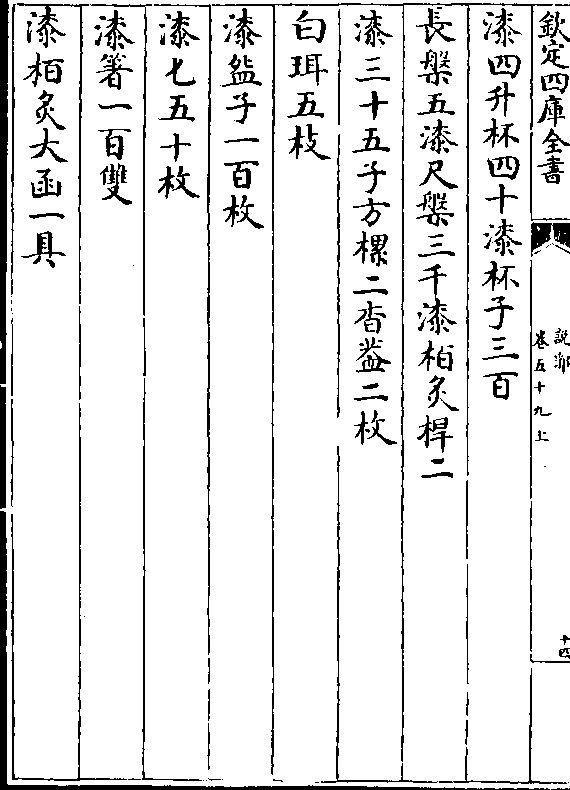 欽定四庫全書
說郛
卷五十九上
十四
漆四升杯四十漆杯子三百
長槃五漆尺槃三千漆柏炙柈二
漆三十五子方樏二沓葢二枚
白珥五枝
漆盌子一百枚
漆七五十枚
漆箸一百雙
漆柏炙大函一具